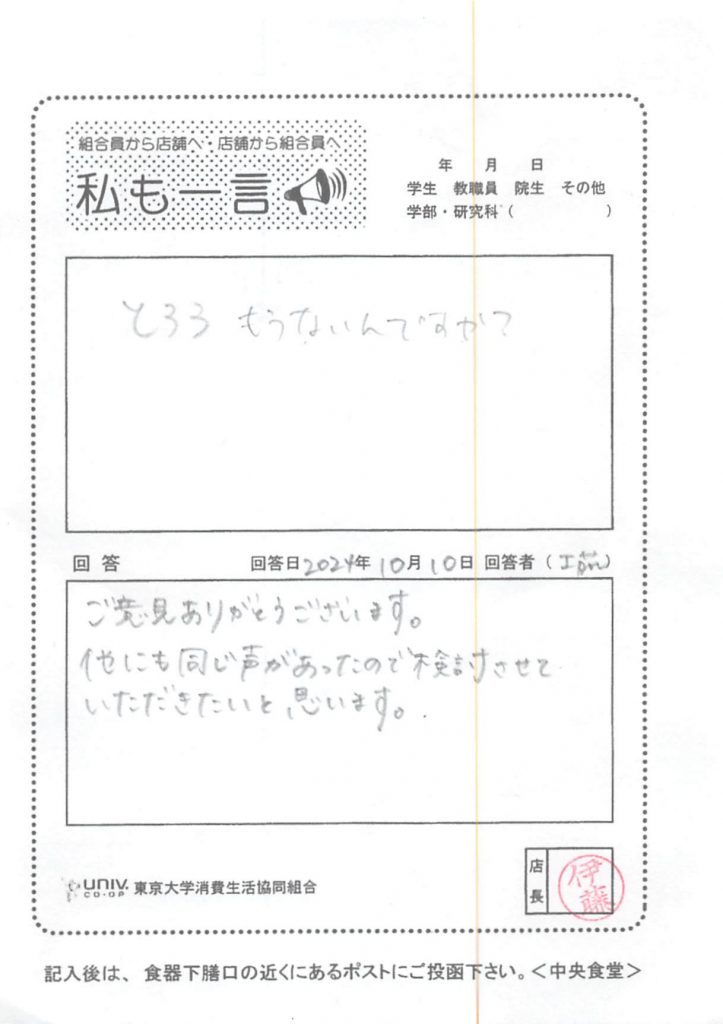 組合員から店舗へ・店舗から組合員へ
私も一言
年 月 日
学生 教職員 院生 その他
学部・研究科( )
とろろ もうないんですか?
回答 回答日2024年10月10日 回答者(工藤)
ご意見ありがとうございます。
他にも同じ声があったので検討させて
いただきたいと思います。
店長
伊藤
UNIV. CO-OP 東京大学消費生活協同組合
記入後は、食器下膳口の近くにあるポストにご投函下さい。<中央食堂>